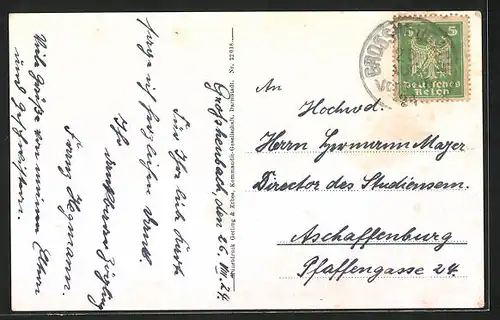 Großheubach, den 26. VIII. 24.
Für Ihre lieb. Karte
sage ich herzlichen Dank.
Ihr
dankbarer Zögling
Franz Hegmann.
Viele Grüße von meinen Eltern
und Geschwistern.
Kunstdruck Gerling & Erbes, Kommandit-Gesellschaft, Darmstadt. Nr. 22638
GROSSH
5
Deutsches
Reich
An
Hochwd.
Herrn Hermann Mayer
Director des Studiensem.
Aschaffenburg
Pfaffengasse 24.